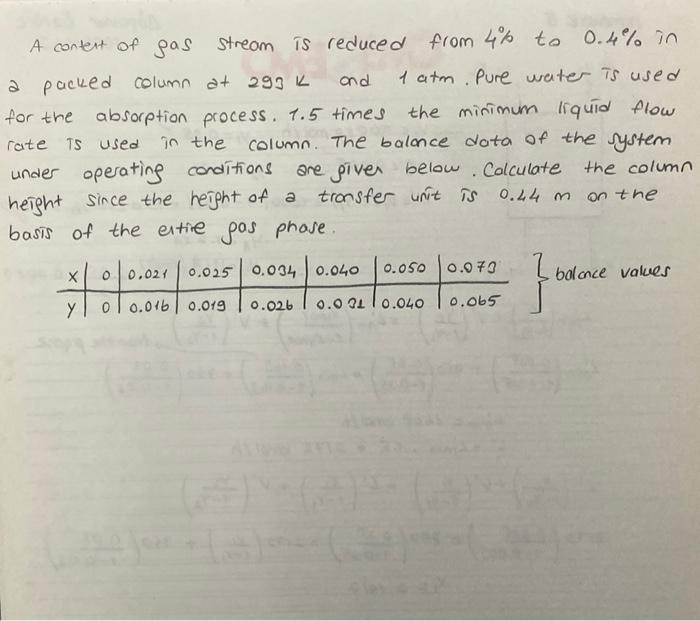 A content of gas stream is reduced from 4% to 0.4% in
a packed column at 293 K and 1 atm. Pure water is used
for the absorption process. 1.5 times the minimum liquid flow
rate is used in the column. The balance data of the system
under operating conditions are given below. Calculate the column
height since the height of a transfer unit is 0.44 m on the
basis of the entire gas phase.
x | 0 | 0.021 | 0.025 | 0.034 | 0.040 | 0.050 | 0.073 } balance values
y | 0 | 0.016 | 0.019 | 0.026 | 0.031 | 0.040 | 0.065